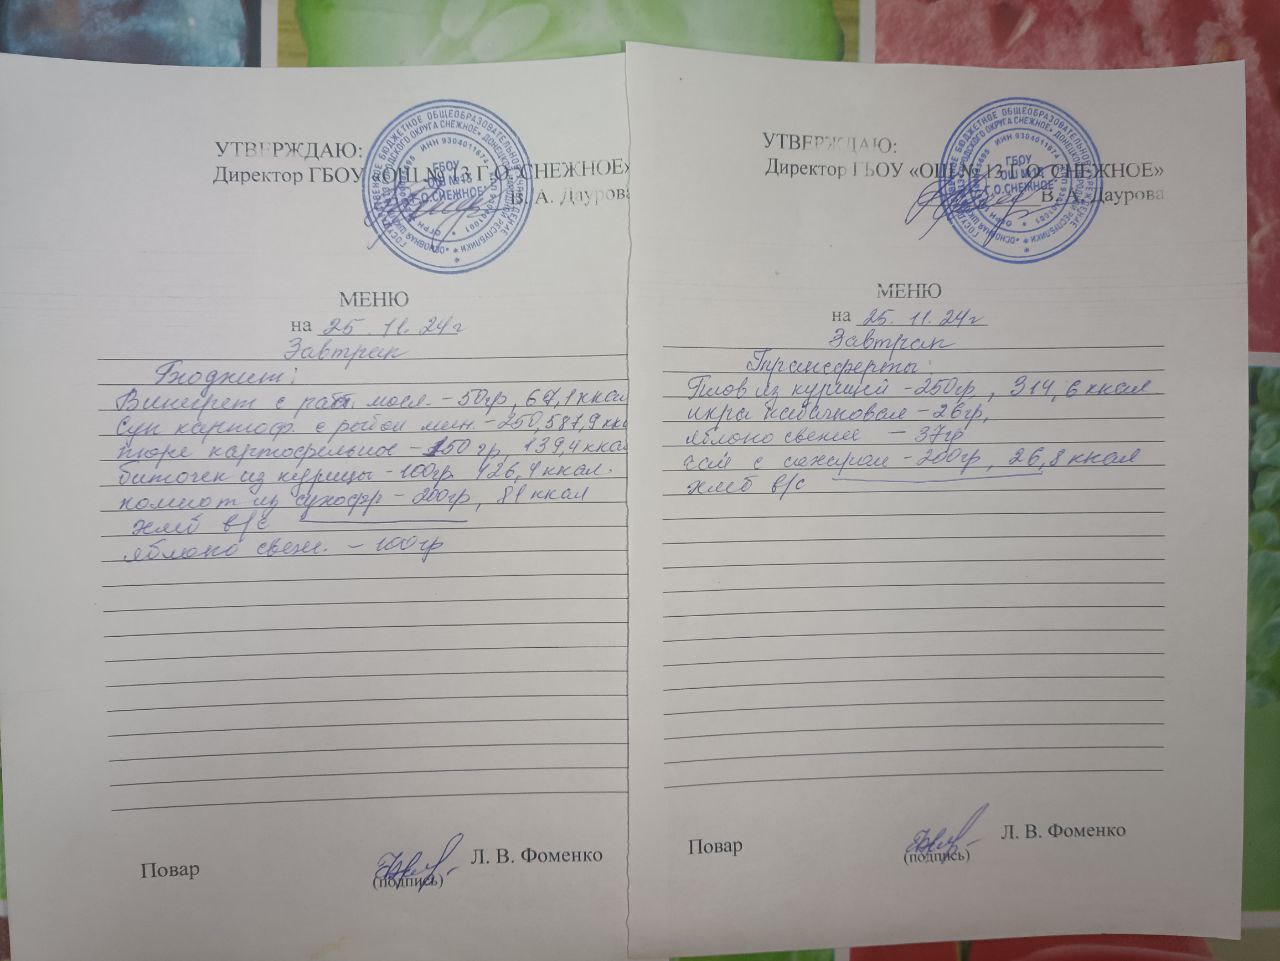 УТВЕРЖДАЮ:
Директор ГБОУ «ОШ № 13 Г.О. СНЕЖНОЕ»
В. А. Даурова
ГБОУ
ОШ №13
Г.О.СНЕЖНОЕ
МЕНЮ
на 25.11.24г
Завтрак
Бюджет:
Винегрет с раст. масл. - 50гр, 67,1 ккал
Суп картоф. с рыбой мин. - 250, 587,9 кка
пюре картофельное - 150 гр, 139,4 ккал
биточек из курицы - 100гр 126,4 ккал.
компот из сухофр - 200гр, 81 ккал
хлеб в/с
яблоко свеж. - 100гр
Повар
(подпись)
Л. В. Фоменко
УТВЕРЖДАЮ:
Директор ГБОУ «ОШ № 13 Г.О. СНЕЖНОЕ»
В. А. Даурова
ГБОУ
ОШ №13
Г.О.СНЕЖНОЕ
МЕНЮ
на 25.11.24г
Завтрак
Трансферты:
Плов из курицей - 250гр, 314,6 ккал
икра кабачковая - 26гр,
яблоко свежее - 37гр
чай с сахаром - 200гр, 26,8 ккал
хлеб в/с
Повар
(подпись)
Л. В. Фоменко